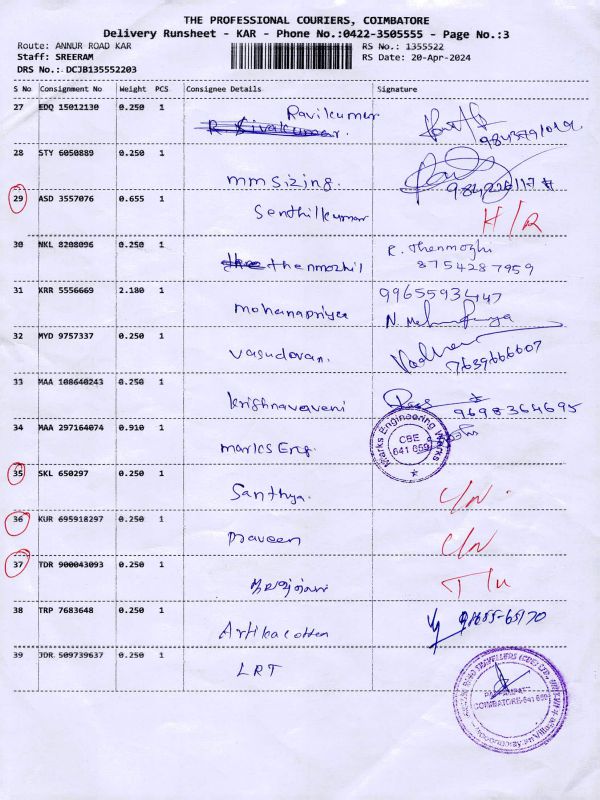 THE PROFESSIONAL COURIERS, COIMBATORE
Delivery Runsheet - KAR - Phone No.:0422-3505555 - Page No.:3
Route: ANNUR ROAD KAR
RS No.: 1355522
Staff: SREERAM
RS Date: 20-Apr-2024
DRS No.: DCJB135552203
S No Consignment No Weight PCS Consignee Details Signature
27 EDQ 15012130 0.250 1
Ravikumar
R Sivakumar.
28 STY 6050889 0.250 1
mm sizing.
29 ASD 3557076 0.655 1
Senthilkumar
H/R
30 NKL 8208096 0.250 1
thenmozhil
R. Thenmozhi
8754287959
31 KRR 5556669 2.180 1
mohanapriya
9965593447
32 MYD 9757337 0.250 1
vasudovan.
7639666607
33 MAA 108640243 0.250 1
krishnavaveni
9698364695
34 MAA 297164074 0.910 1
marks Eng.
Marks Engineering Works
CBE
641 659
35 SKL 650297 0.250 1
Santhya.
36 KUR 695918297 0.250 1
Praveen
37 TDR 900043093 0.250 1
38 TRP 7683648 0.250 1
39 JDR 509739637 0.250 1
LRT
COIMBATORE-641 659